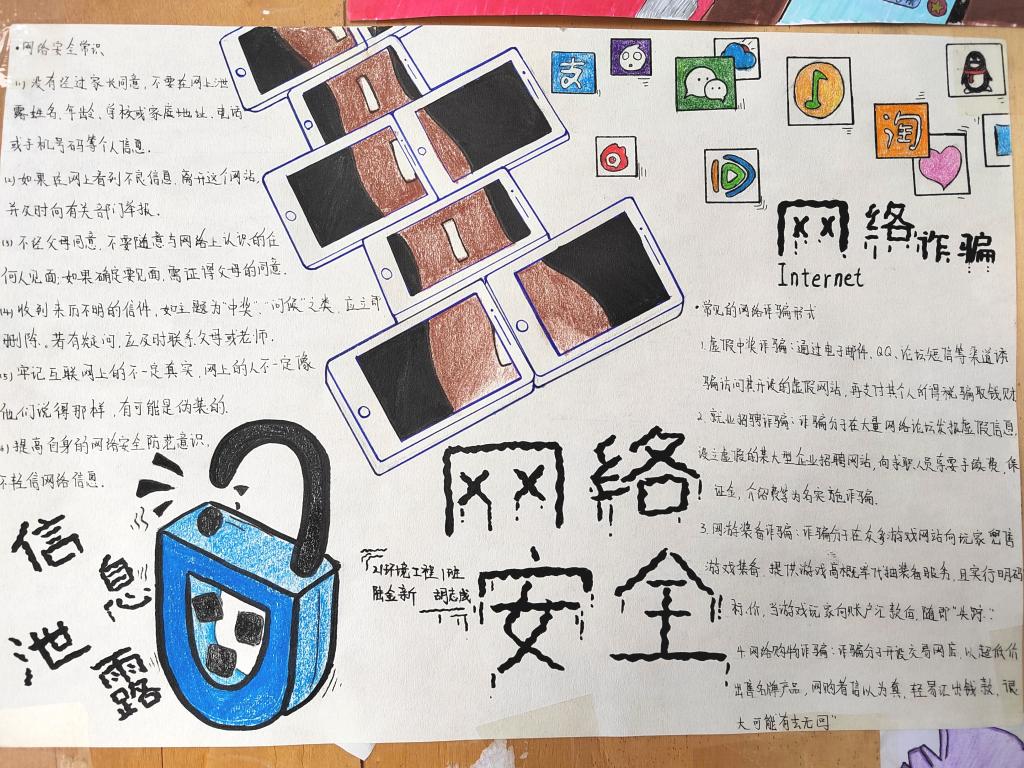 ·网络安全常识
(1)没有经过家长同意,不要在网上泄
露姓名、年龄、学校或家庭地址、电话
或手机号码等个人信息.
(2)如果在网上看到不良信息,离开这个网站,
并及时向有关部门举报.
(3)不经父母同意,不要随意与网络上认识的任
何人见面;如果确定要见面,需征得父母的同意.
(4)收到来历不明的信件,如主题为"中奖","问候"之类,应立即
删除,若有疑问,立及时联系父母或老师.
(5)牢记互联网上的不一定真实,网上的人不一定像
他们说得那样,有可能是伪装的.
提高自身的网络安全防范意识,
不轻信网络信息.
信
息
泄
露
支
淘
网络诈骗
Internet
·常见的网络诈骗形式
1.虚假中奖诈骗:通过电子邮件、QQ、论坛短信等渠道诱
骗访问其开设的虚假网站,再支付其个人所得税骗取钱财
2.就业招聘诈骗:诈骗分子在大量网络论坛发报虚假信息,
设立虚假的某大型企业招聘网站,向求职人员索要手续费、保
证金,介绍费等为名实施诈骗.
3.网游装备诈骗:诈骗分子在众多游戏网站向玩家兜售
游戏装备,提供游戏高概率代抽装备服务,且实行明码
标价,当游戏玩家向账户汇款后,随即"失踪".
4.网络购物诈骗:诈骗分子开设交易网店,以超低价
出售名牌产品,网购者信以为真,轻易汇出钱款,很
大可能有去无回"
网络
安全
21环境工程1班
陆金新 胡志成